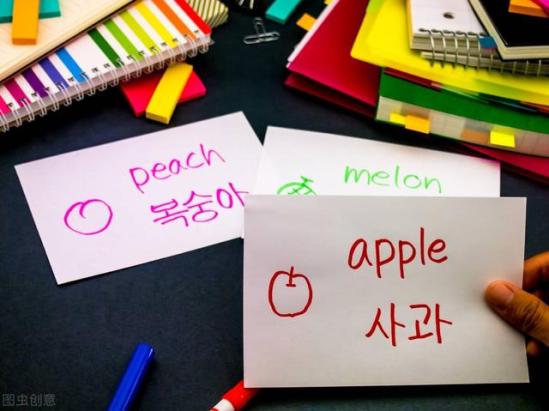 peach
복숭아
melon
apple
사과
图虫创意